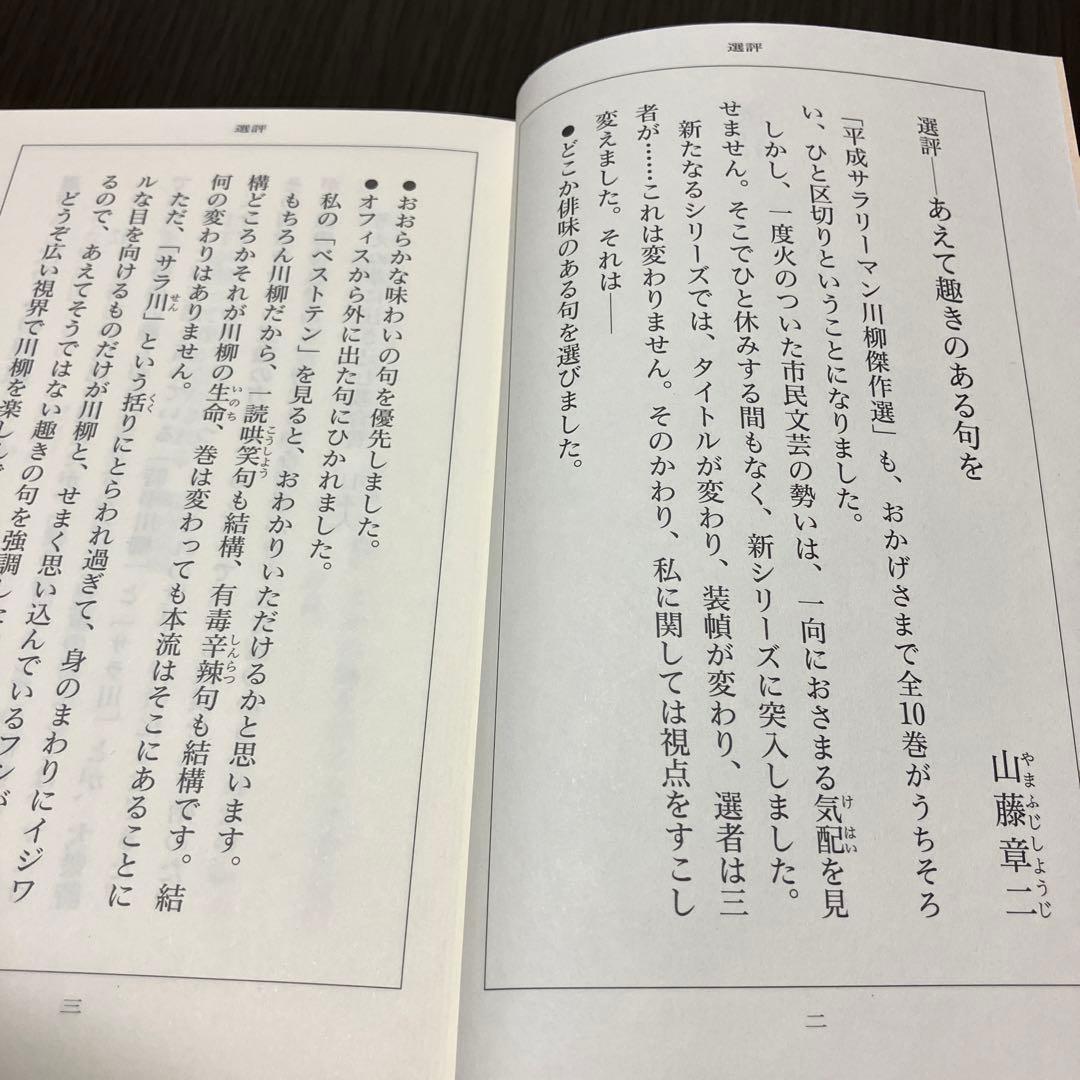 選評
選評――あえて趣きのある句を
山藤章二
やまふじしようじ
「平成サラリーマン川柳傑作選」も、おかげさまで全10巻がうちそろ
い、ひと区切りということになりました。
しかし、一度火のついた市民文芸の勢いは、一向におさまる気配を見
けはい
せません。そこでひと休みする間もなく、新シリーズに突入しました。
新たなるシリーズでは、タイトルが変わり、装幀が変わり、選者は三
者が……これは変わりません。そのかわり、私に関しては視点をすこし
変えました。それは――
●どこか俳味のある句を選びました。
二
選評
●おおらかな味わいの句を優先しました。
●オフィスから外に出た句にひかれました。
私の「ベストテン」を見ると、おわかりいただけるかと思います。
もちろん川柳だから、一読哄笑句も結構、有毒辛辣句も結構です。結
こうしよう
しんらつ
構どころかそれが川柳の生命、巻は変わっても本流はそこにあることに
いのち
何の変わりはありません。
ただ、「サラ川」という括りにとらわれ過ぎて、身のまわりにイジワ
せん
くく
ルな目を向けるものだけが川柳と、せまく思い込んでいるフンが
るので、あえてそうではない趣きの句を強調した
どうぞ広い視界で川柳を楽しんで
三